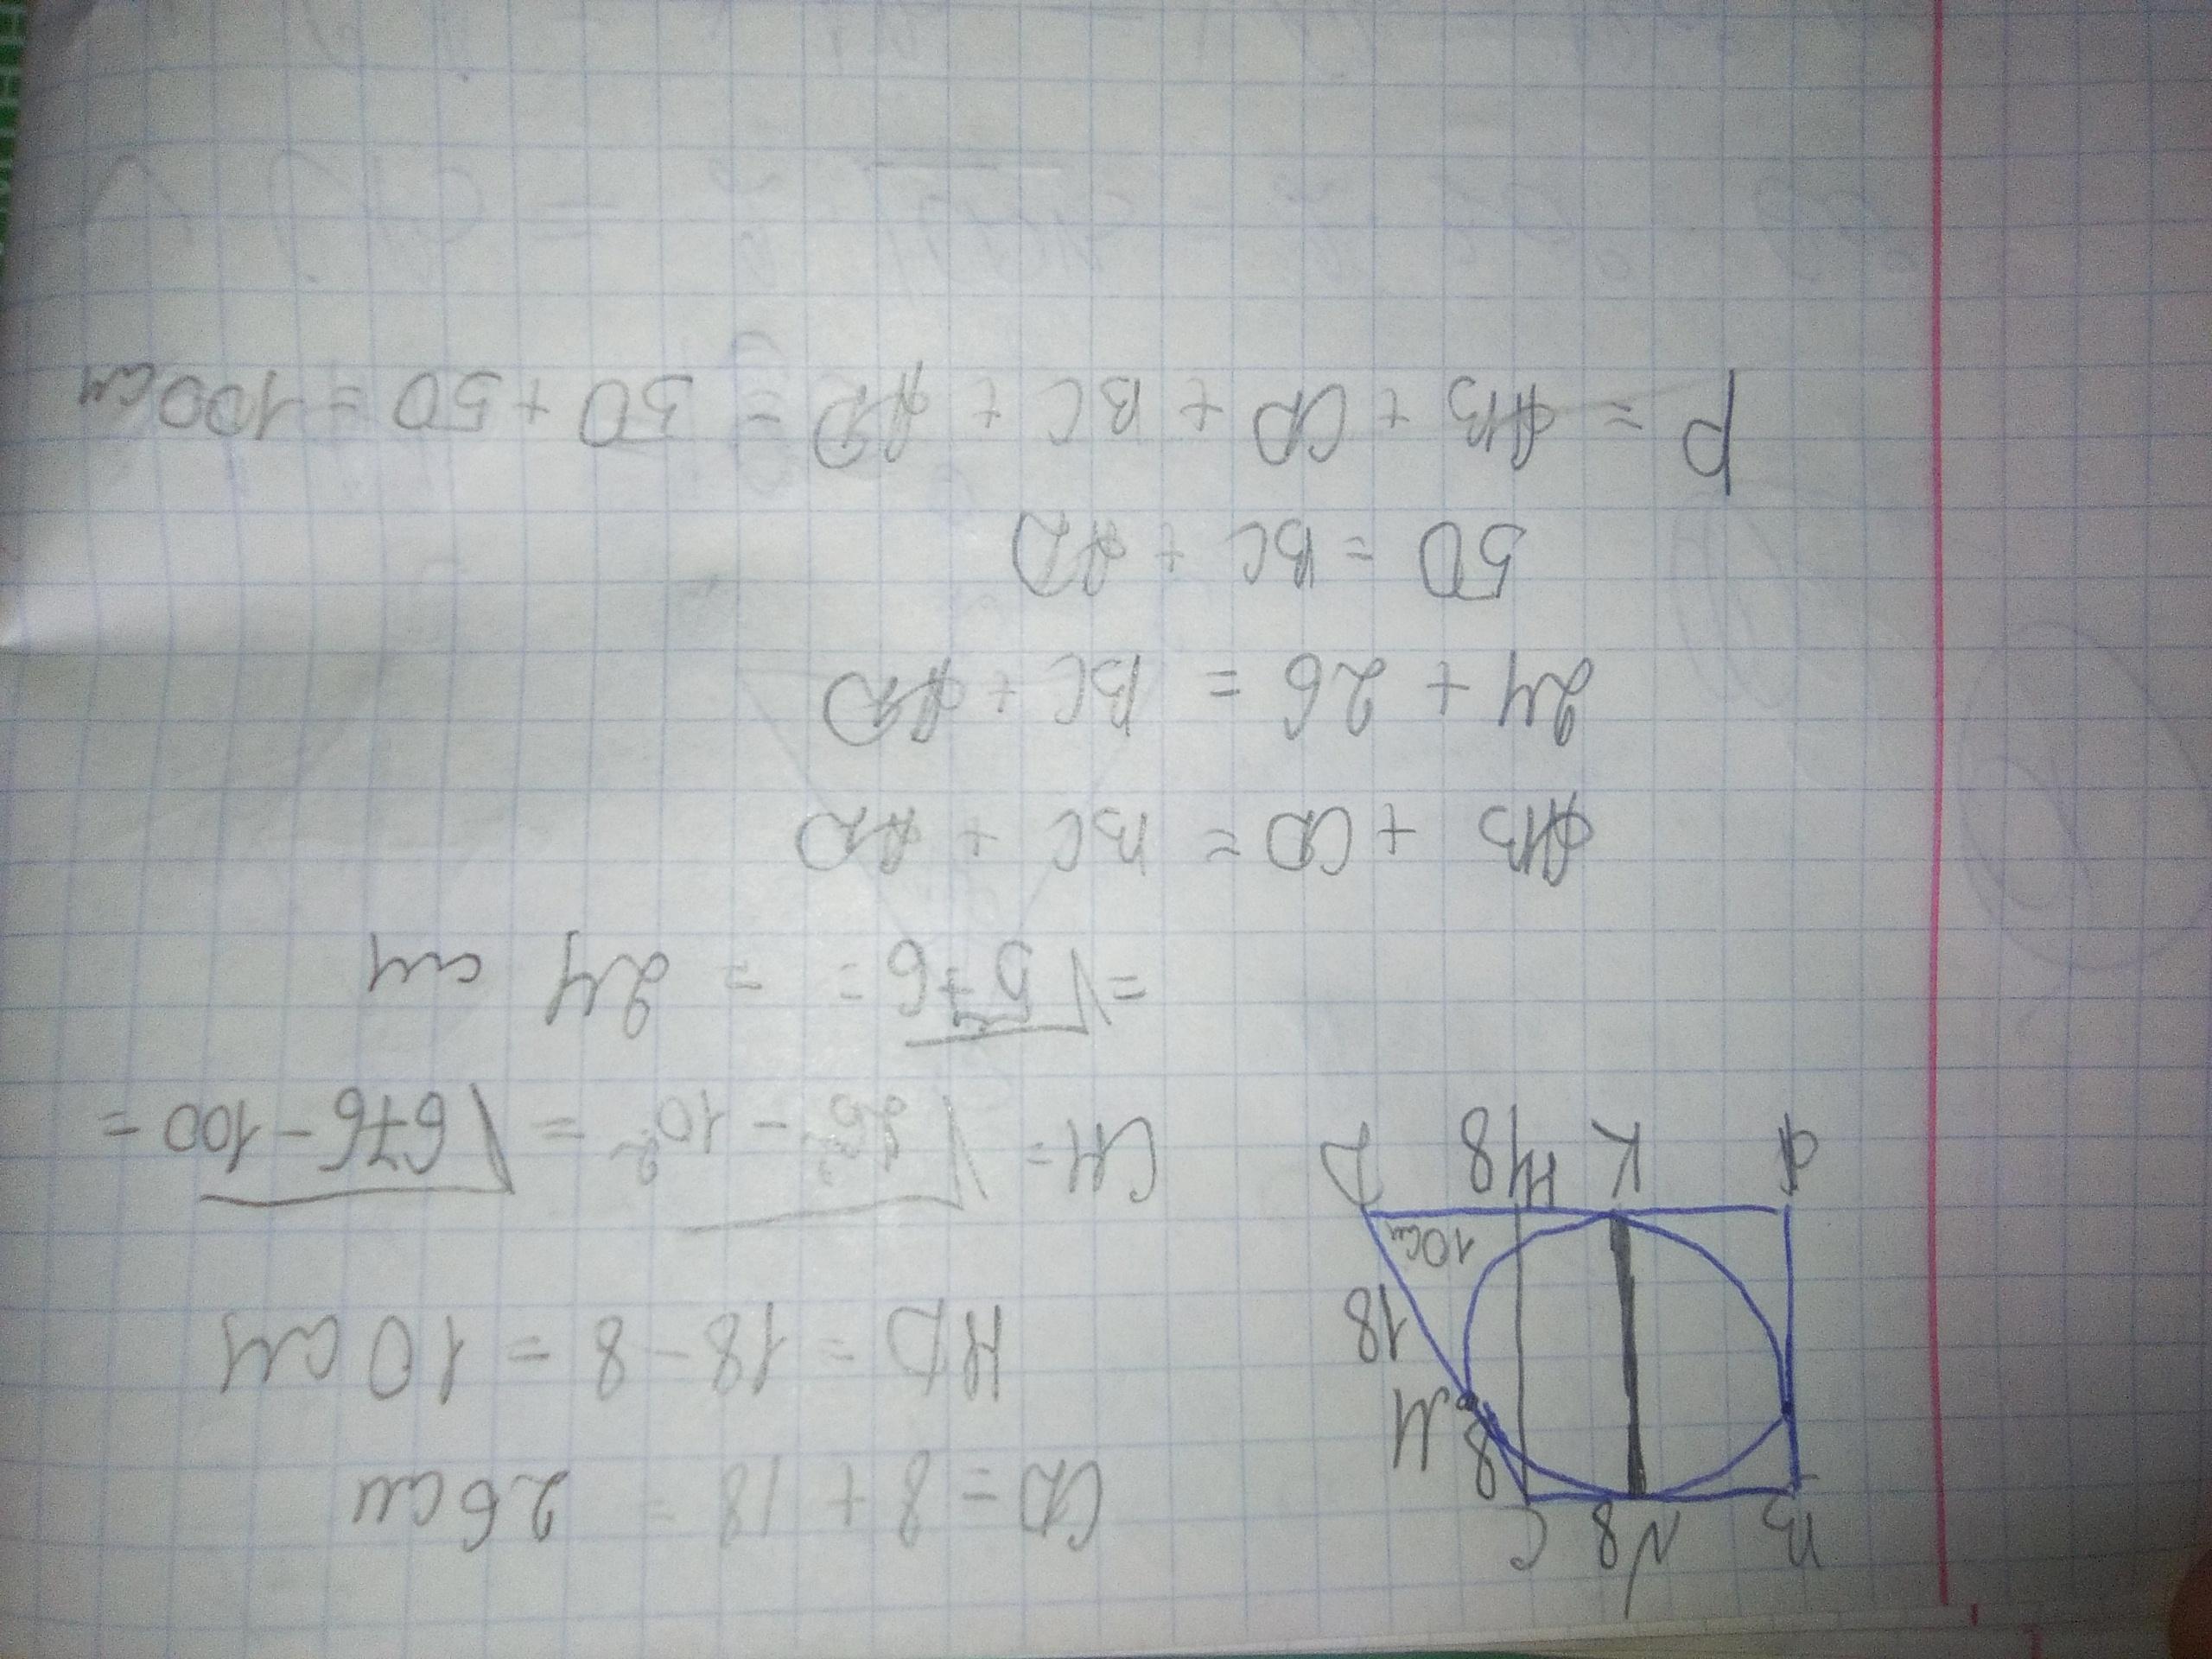 B N 8 C
CD = 8 + 18 = 26 см
8
M
HD = 18 - 8 = 10 см
18
10 см
A K H 8 D
CH = √26² - 10² = √676 - 100 =
= √576 = = 24 см
AB + CD = BC + AD
24 + 26 = BC + AD
50 = BC + AD
P = AB + CD + BC + AD = 50 + 50 = 100 см